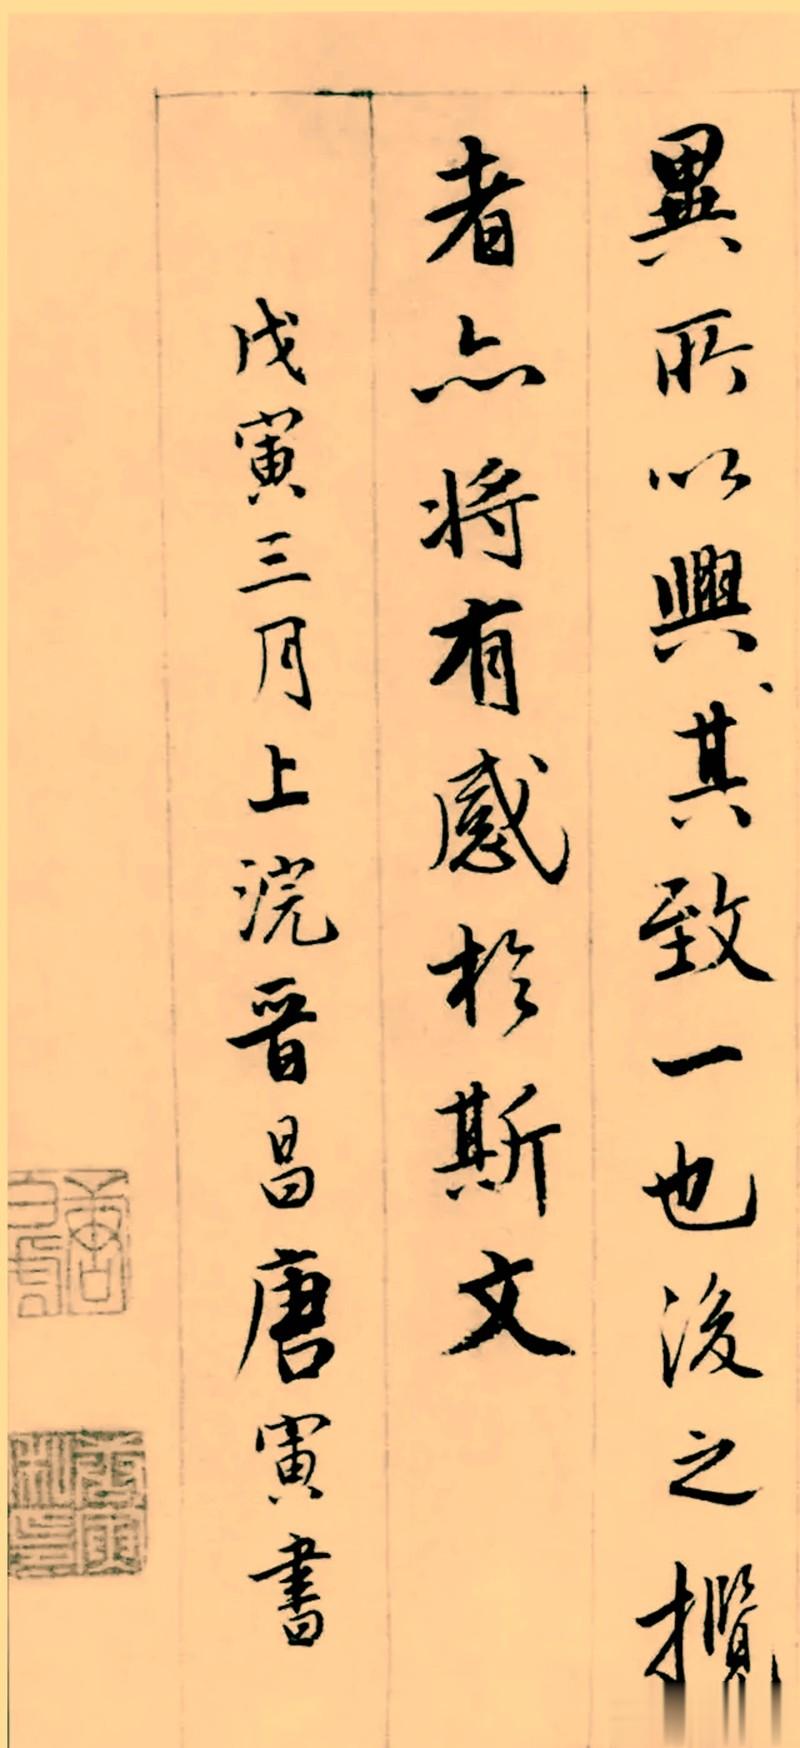 異所以興其致一也後之攬
者亦將有感於斯文
戊寅三月上浣晉昌唐寅書